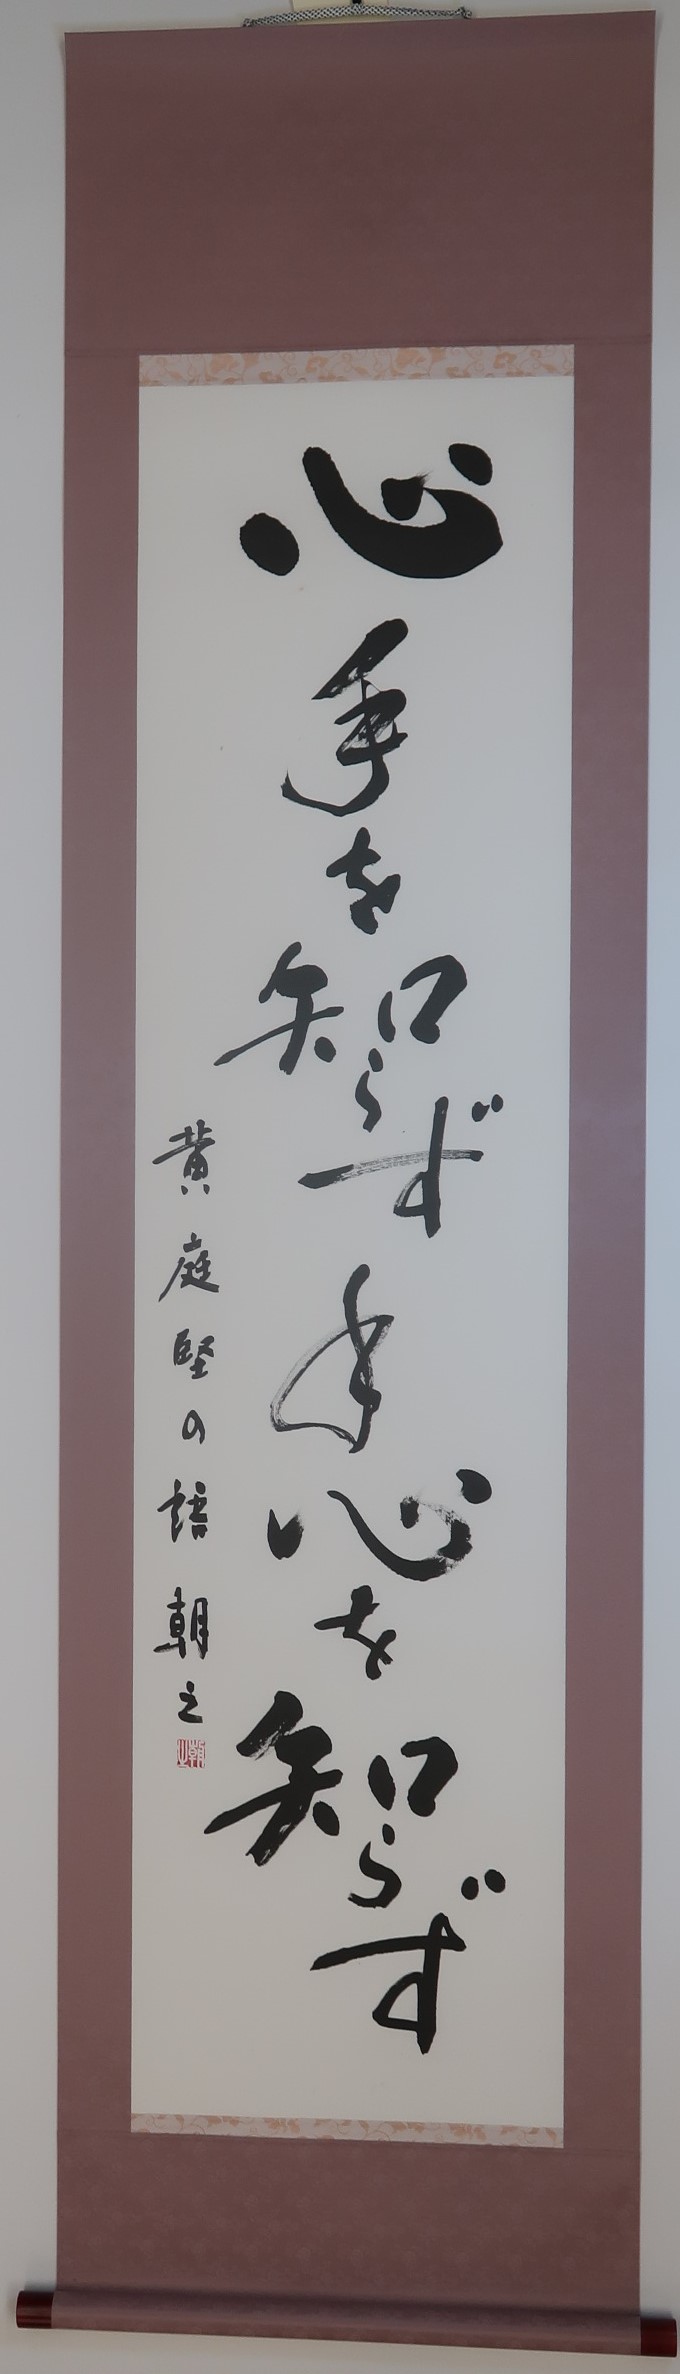 心手を知らず手心を知らず
黄庭堅の語 朝之
朝之